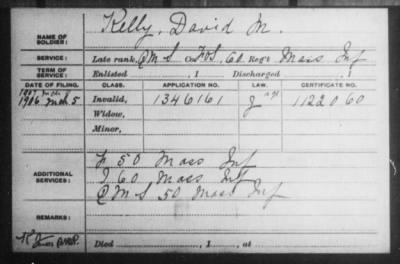 NAME OF SOLDIER: Kelly, David M.
SERVICE: Late rank, Q M S Co. F&S, 60 Reg't Mass Inf
TERM OF SERVICE: Enlisted , 1 Discharged , 1
DATE OF FILING. CLASS. APPLICATION NO. LAW. CERTIFICATE NO.
1906 Mch 5 Invalid, 1346161 1122060
Widow,
Minor,
F 50 Mass Inf
ADDITIONAL SERVICES: I 60 Mass Inf
Q M S 50 Mass Inf
REMARKS:
Died , 1 , at